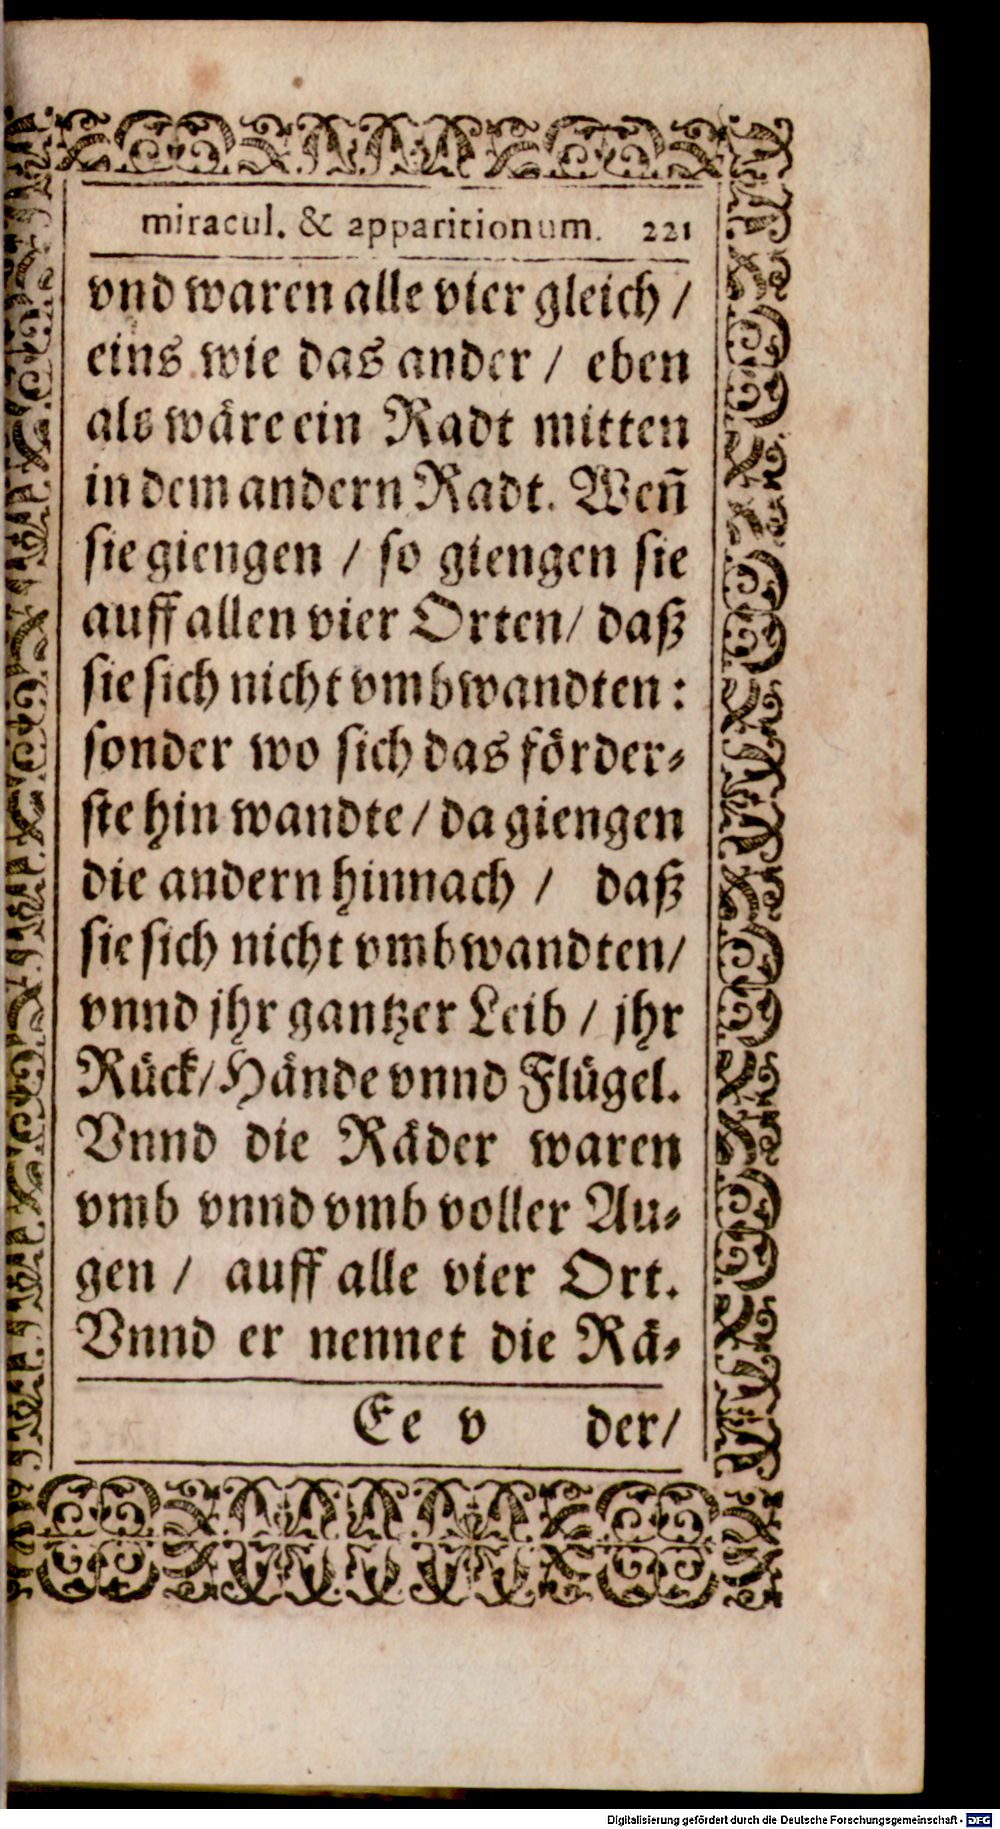 miracul. & apparitionum. 221
vnd waren alle vier gleich /
eins wie das ander / eben
als wäre ein Radt mitten
in dem andern Radt. Weñ
sie giengen / so giengen sie
auff allen vier Orten / daß
sie sich nicht vmbwandten :
sonder wo sich das förder-
ste hin wandte / da giengen
die andern hinnach / daß
sie sich nicht vmbwandten /
vnnd jhr gantzer Leib / jhr
Rück / Hände vnnd Flügel.
Vnnd die Räder waren
vmb vnnd vmb voller Au-
gen / auff alle vier Ort.
Vnnd er nennet die Rä-
Ee v der /
Digitalisierung gefördert durch die Deutsche Forschungsgemeinschaft - DFG